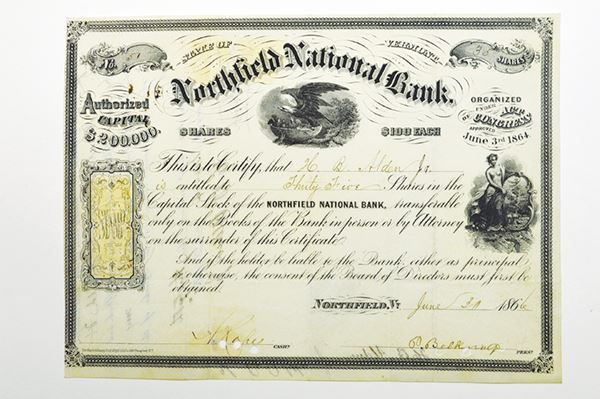 STATE OF VERMONT
No.
SHARES
Northfield National Bank.
Authorized
CAPITAL
$200,000.
ORGANIZED
UNDER
ACT
OF
CONGRESS
APPROVED
June 3rd 1864
SHARES $100 EACH
This is to Certify, that H. B. Alden Jr.
is entitled to Thirty Five Shares in the
Capital Stock of the NORTHFIELD NATIONAL BANK, transferable
only on the Books of the Bank in person or by Attorney
on the surrender of this Certificate
And if the holder be liable to the Bank, either as principal
or otherwise, the consent of the Board of Directors must first be
obtained.
NORTHFIELD, Vt. June 30 1866
CASHR.
P. Belknap PREST.